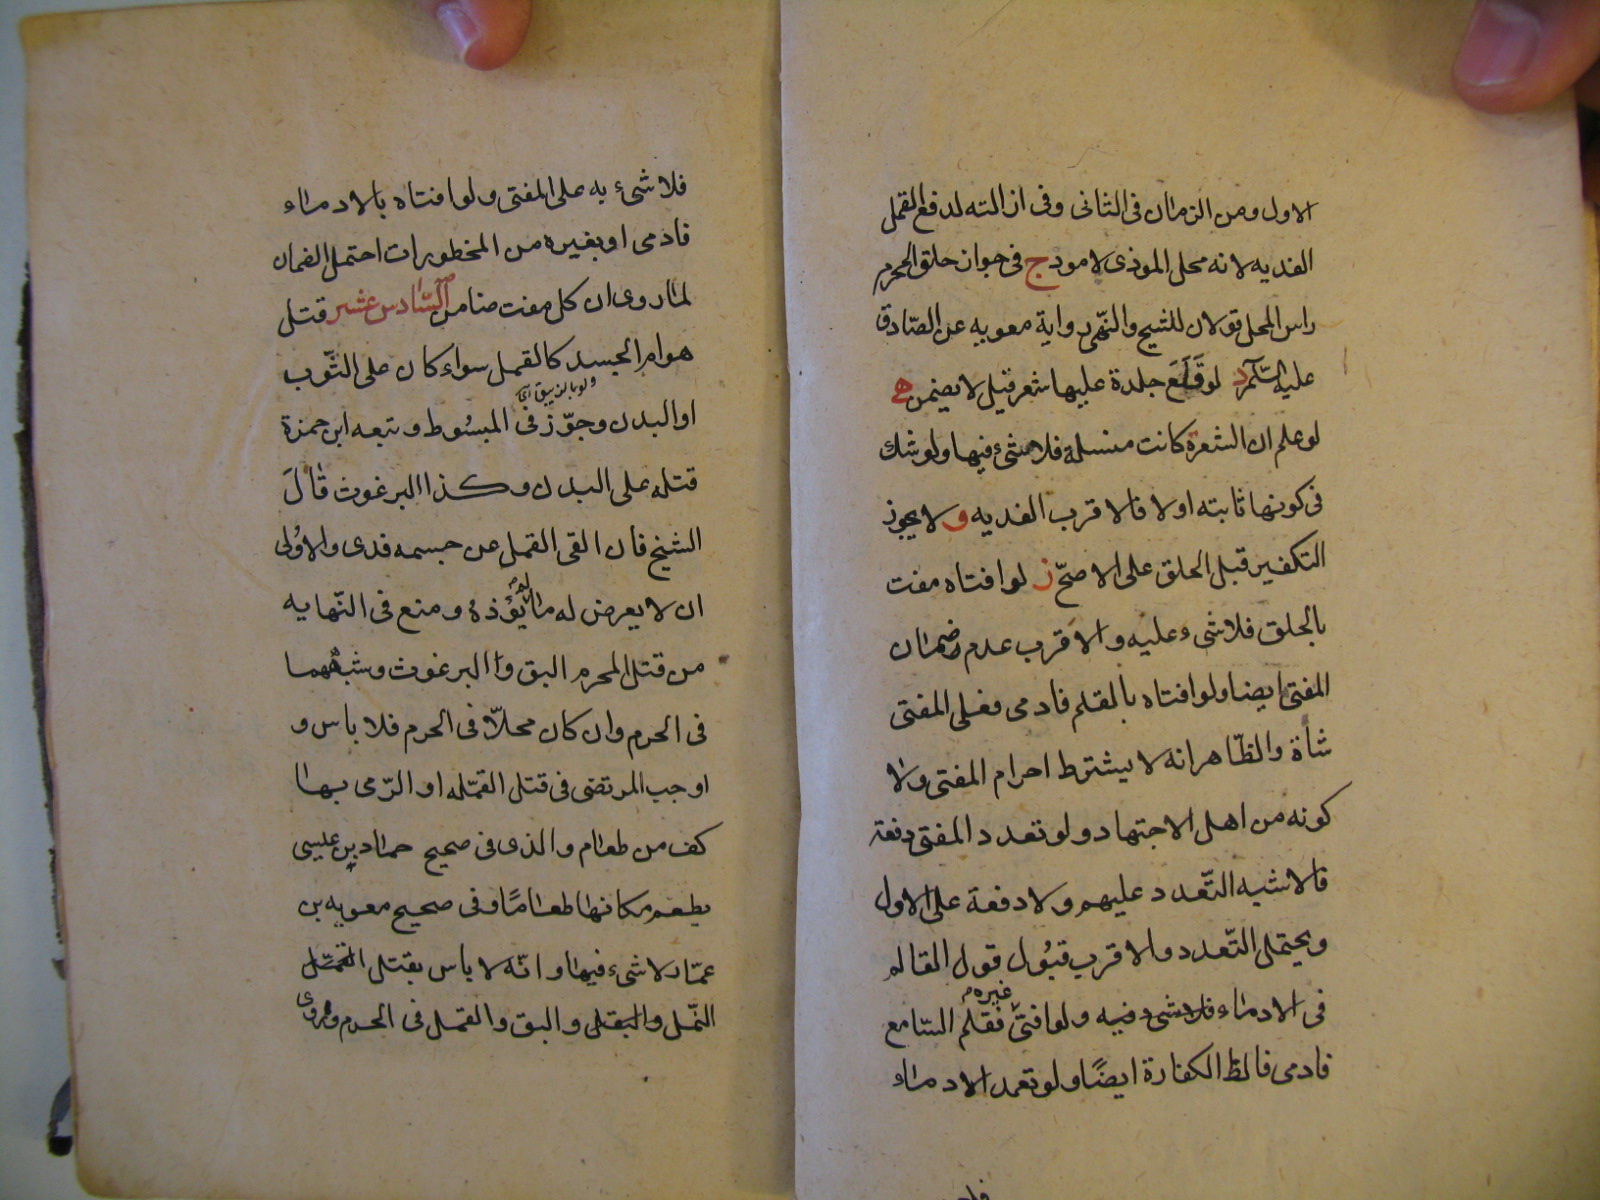 الاول ومن الزمان فى الثانى وفى ازالته لدفع القمل
الفديه لانه محل الموذى لا موذ ج فى جواز حلق المحرم
راس المحل قولان للشيخ والنهى رواية معويه عن الصّادق
عليه السّلم د لو قلع جلدة عليها شعر قيل لا يضمن ه
لو علم ان الشعرة كانت منسلة فلا شىء فيها ولو شك
فى كونها ثابته اولا فالاقرب الفديه و لا يجوز
التكفير قبل الحلق على الاصحّ ز لو افتاه مفت
بالحلق فلا شىء عليه والاقرب عدم ضمان
المفتى ايضا ولو افتاه بالقلم فادمى فعلى المفتى
شاة والظّاهر انه لا يشترط احرام المفتى ولا
كونه من اهل الاجتهاد ولو تعدد المفتى دفعة
فالاشبه التّعدد عليهم ولا دفعة على الاول
ويحتمل التّعدد والاقرب قبُول قول القالم
فى الادماء فلا شىء فيه ولو افتى غيره فقلم السّامع
فادمى فالظ الكفارة ايضًا ولو تعمد الادماء
فلا شىء به على المفتى ولو افتاه بالادماء
فادمى او بغيره من المحظورات احتمل الضمان
لما روى ان كل مفت ضامن السّادس عشر قتل
هوام الجسد كالقمل سواء كان على الثّوب
او البدن وجوّز فى المبسُوط وتبعه ابن حمزة
قتله على البدن وكذا البرغوث قالَ
الشيخ فان القى القمل عن جسمه فدى والاولى
ان لا يعرض له ما لم يؤذه ومنع فى النّهايه
من قتل المحرم البق والبرغوث وشبههما
فى الحرم وان كان محلّا فى الحرم فلا باس و
اوجب المرتضى فى قتل القمّله او الرّمى بها
كف من طعام والذى فى صحيح حماد بن عيسى
يطعم مكانها طعامًا وفى صحيح معويه بن
عمّار لا شىء فيها وانّه لا باس بقتل القمّل
النّمل والبق والقمل فى الحرم وروى